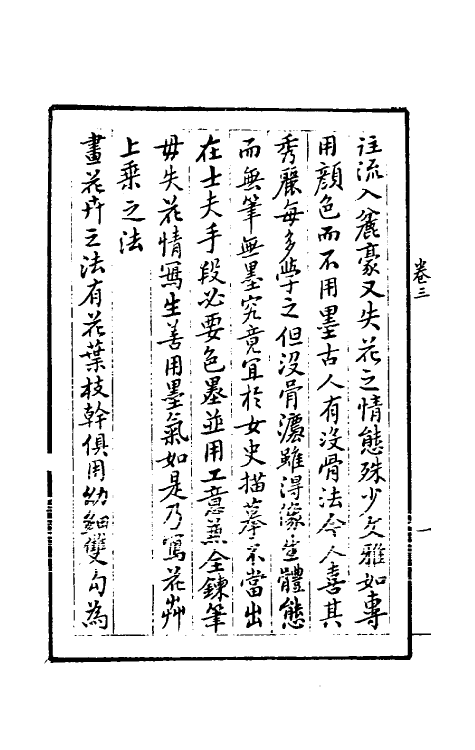 註流入麄豪又失花之情態殊少文雅如專
用顏色而不用墨古人有沒骨法今人喜其
秀麗每多學之但沒骨濃雖得像生體態
而無筆無墨究竟宜於女史描摹不當出
在士夫手段必要色墨並用工意兼全鍊筆
毋失花情寫生善用墨氣如是乃寫花艸
上乘之法
畫花卉之法有花葉枝幹俱用幼細雙勾為
卷三
一